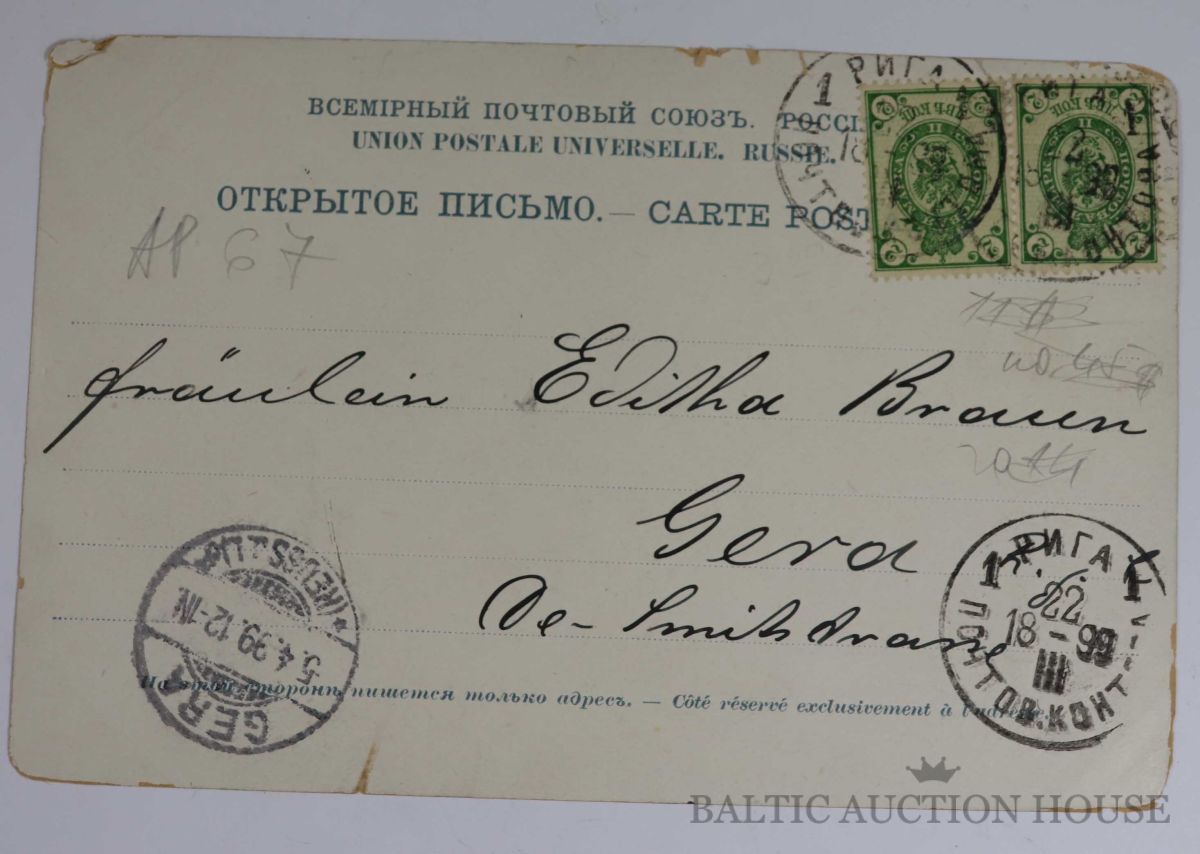 ВСЕМІРНЫЙ ПОЧТОВЫЙ СОЮЗЪ. РОССІ
UNION POSTALE UNIVERSELLE. RUSSIE.
ОТКРЫТОЕ ПИСЬМО. — CARTE POST
РИГА
1
18
2
2
2
2
AP 67
fräulein Editha Braun
Gera
De-Smitstrasse
РИГА
1 22 1
18 - 99
III
ПОЧТОВ. КОНТ
GERA
5.4.99. 12-1N.
(REUSS j.L.)b
На этой сторонѣ пишется только адресъ. — Côté réservé exclusivement à l'adresse.
BALTIC AUCTION HOUSE